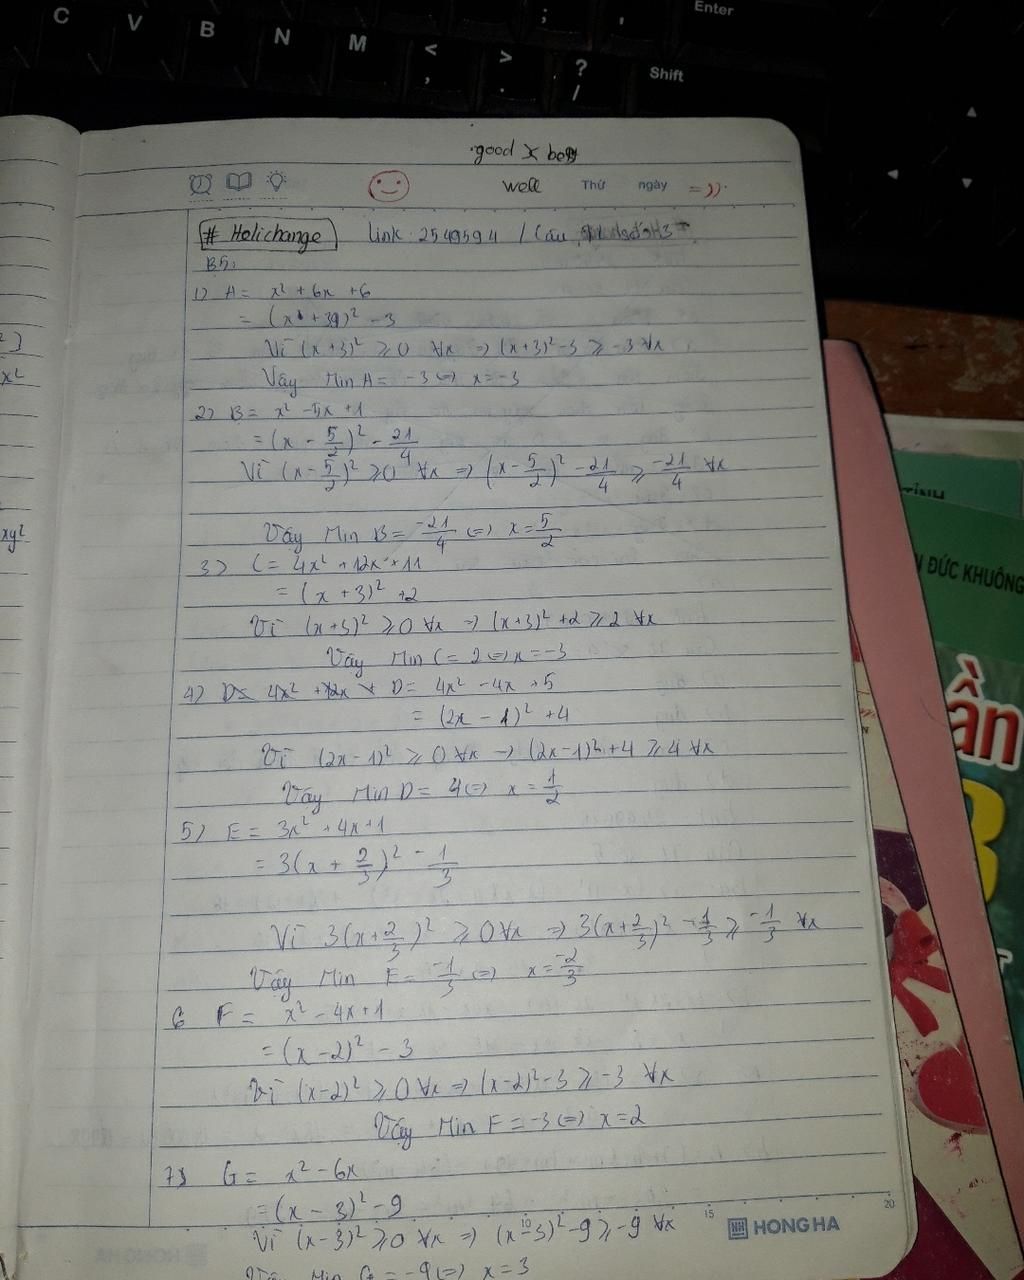 C V B N M < , > . ? / ; , Enter Shift
good x boy
well Thứ ngày =))
# Holichange Link: 2549594 / Câu
B5:
1) A = x² + 6x + 6
= (x + 3)² - 3
Vì (x+3)² ≥ 0 ∀x => (x+3)² - 3 ≥ -3 ∀x
Vậy Min A = -3 <=> x = -3
2) B = x² - 5x + 1
= (x - 5/2)² - 21/4
Vì (x - 5/2)² ≥ 0 ∀x => (x - 5/2)² - 21/4 ≥ -21/4 ∀x
Vậy Min B = -21/4 <=> x = 5/2
3) C = 4x² + 12x + 11
= (x + 3)² + 2
Vì (x+3)² ≥ 0 ∀x => (x+3)² + 2 ≥ 2 ∀x
Vậy Min C = 2 <=> x = -3
4) D = 4x² + 12x + D = 4x² - 4x + 5
= (2x - 1)² + 4
Vì (2x - 1)² ≥ 0 ∀x -> (2x - 1)² + 4 ≥ 4 ∀x
Vậy Min D = 4 <=> x = 1/2
5) E = 3x² + 4x + 1
= 3(x + 2/3)² - 1/3
Vì 3(x + 2/3)² ≥ 0 ∀x => 3(x + 2/3)² - 1/3 ≥ -1/3 ∀x
Vậy Min E = -1/3 <=> x = -2/3
6 F = x² - 4x + 1
= (x - 2)² - 3
Vì (x - 2)² ≥ 0 ∀x => (x - 2)² - 3 ≥ -3 ∀x
Vậy Min F = -3 <=> x = 2
7) G = x² - 6x
= (x - 3)² - 9
Vì (x - 3)² ≥ 0 ∀x => (x - 3)² - 9 ≥ -9 ∀x
Vậy Min G = -9 <=> x = 3
10 15 20
HONG HA
x²
xy²
TỈNH
ĐỨC KHUÔNG
ần
8